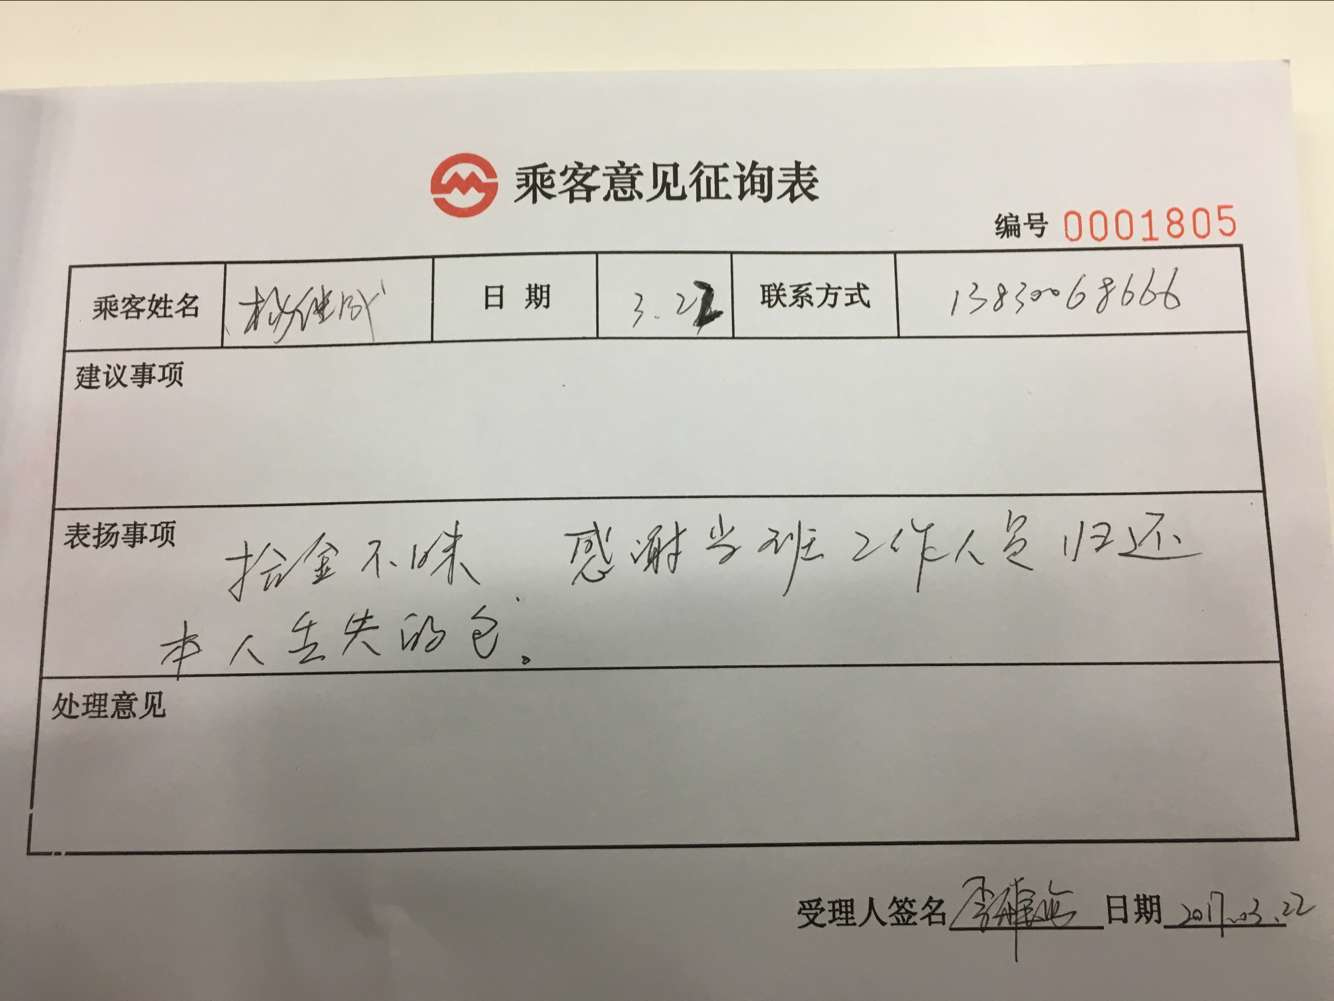 乘客意见征询表
编号 0001805
乘客姓名 日期 3.22 联系方式 13830068666
建议事项
表扬事项
拾金不昧 感谢当班工作人员归还
本人丢失的包。
处理意见
受理人签名 日期 2017.03.22